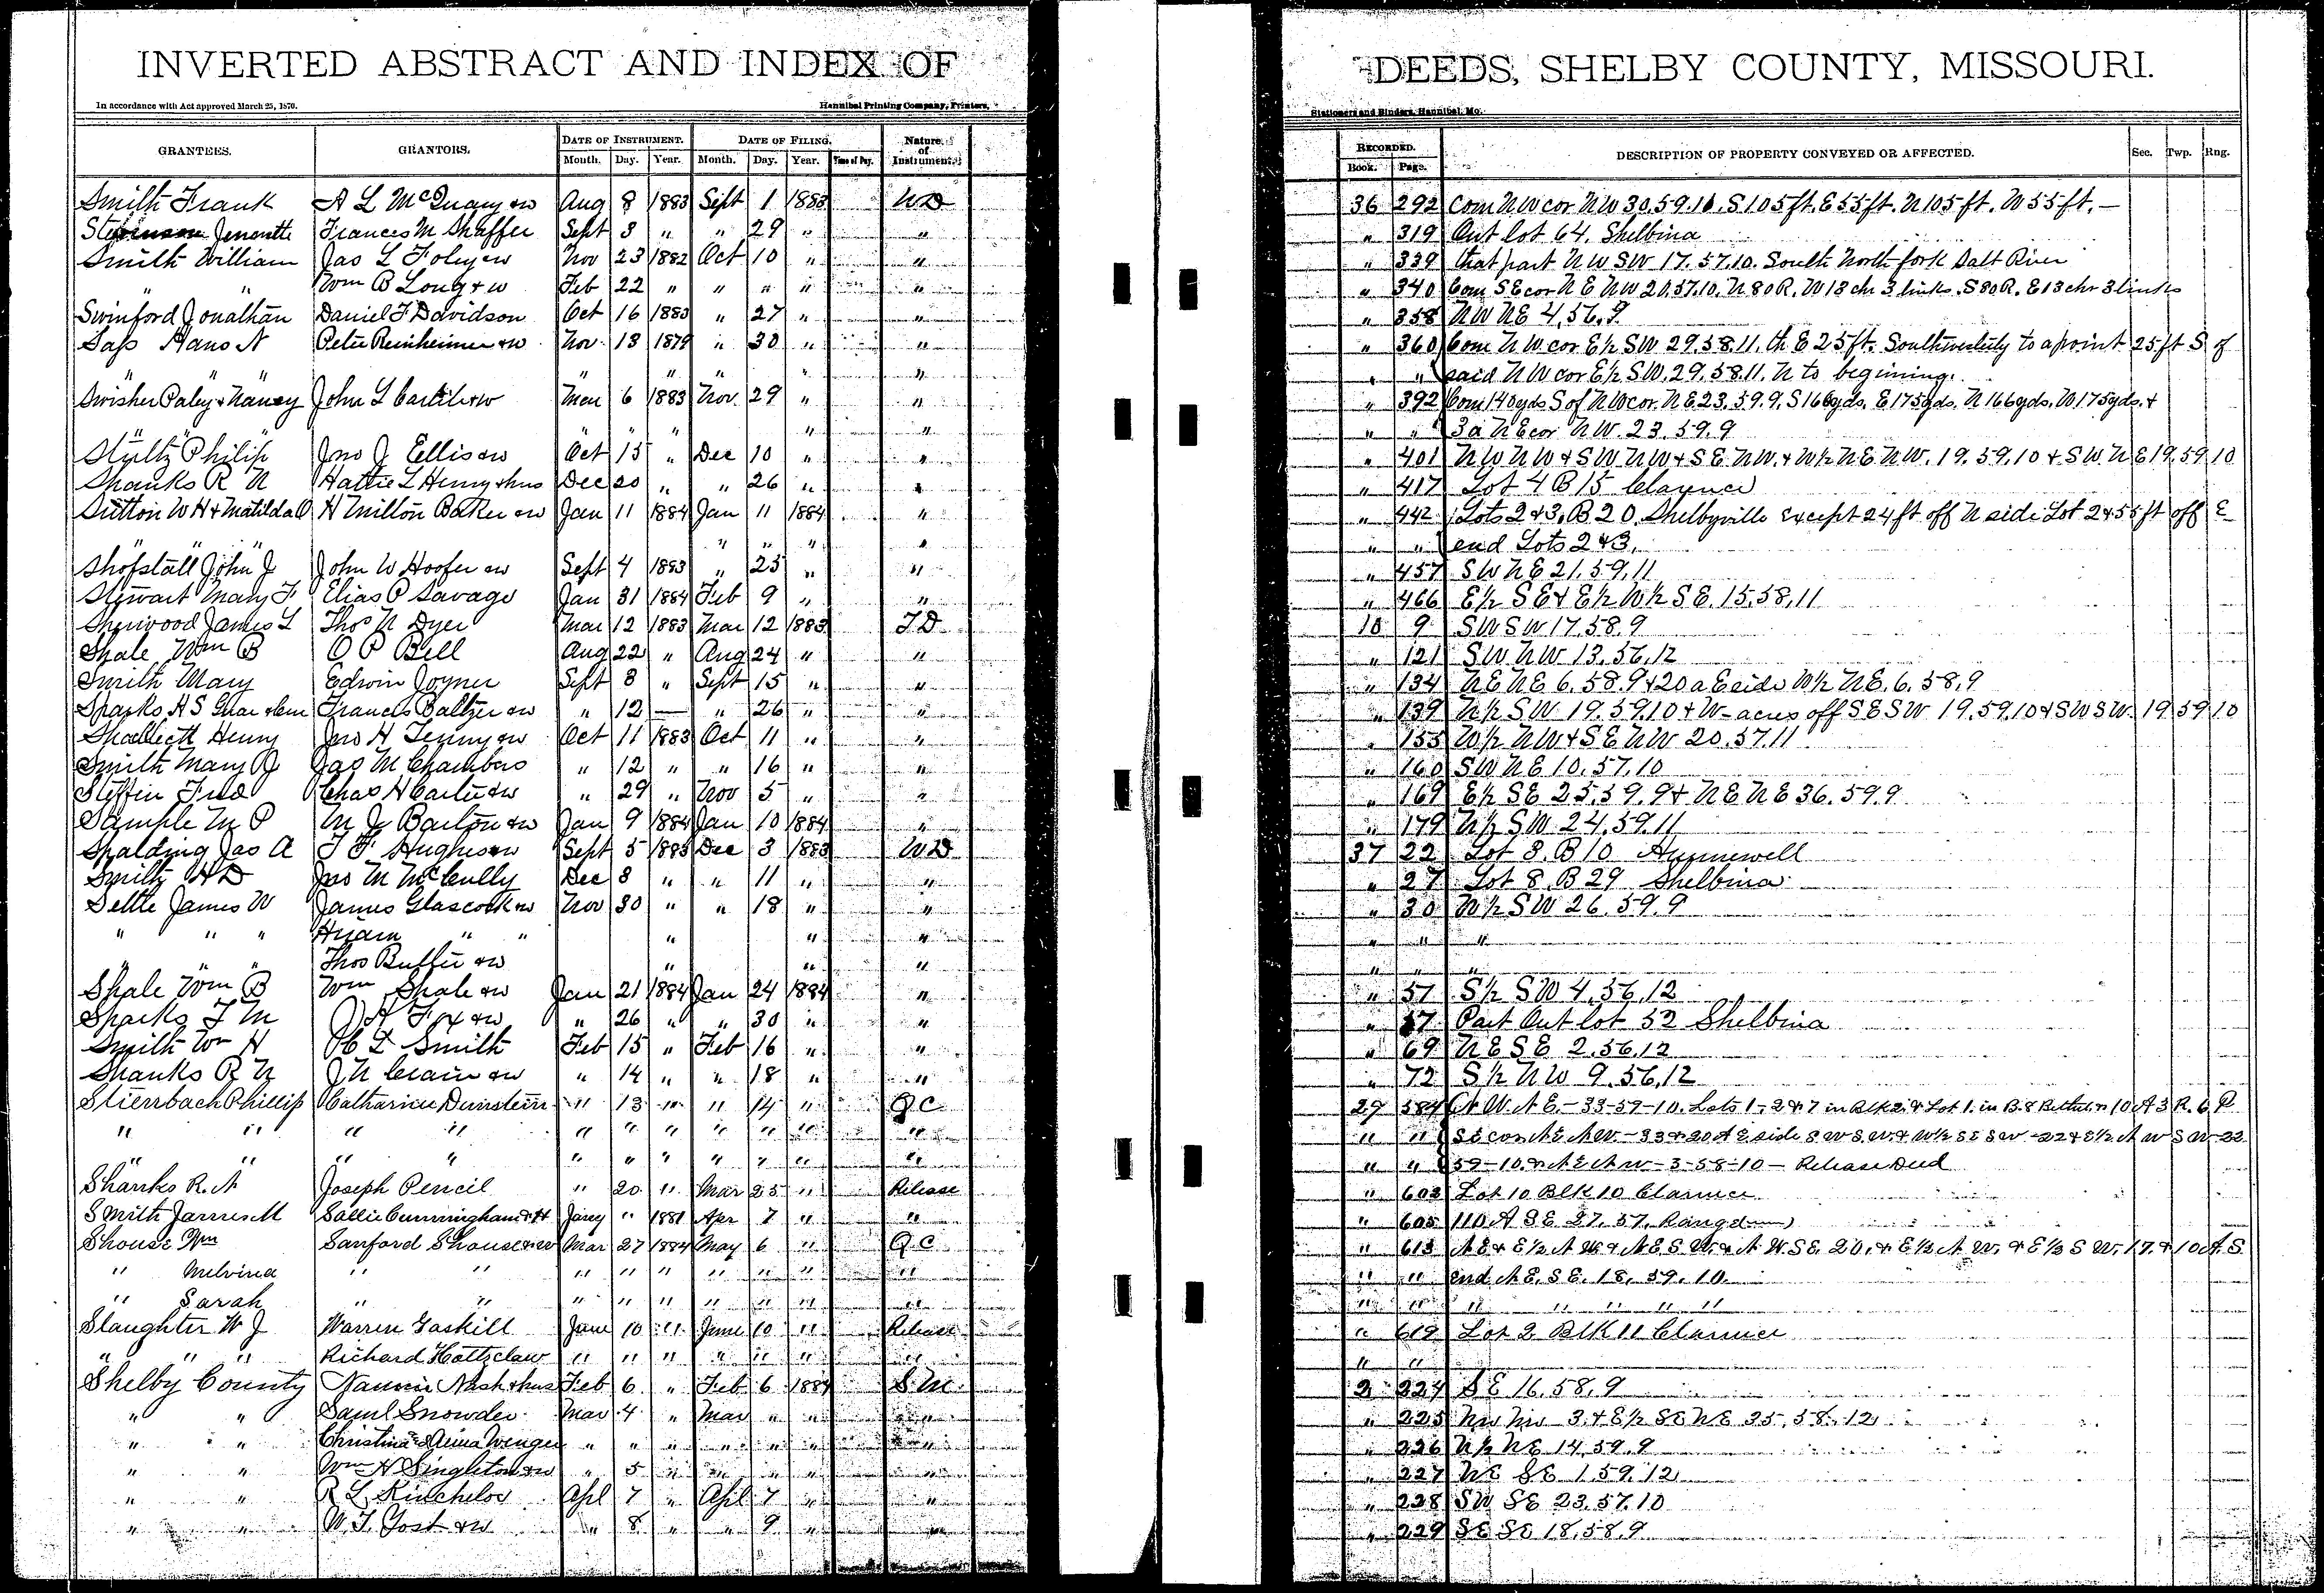 INVERTED ABSTRACT AND INDEX OF DEEDS, SHELBY COUNTY, MISSOURI.
In accordance with Act approved March 25, 1870. Hannibal Printing Company, Printers, Stationers and Binders, Hannibal, Mo.
GRANTEES. GRANTORS. DATE OF INSTRUMENT. DATE OF FILING. Nature of Instrument. RECORDED. DESCRIPTION OF PROPERTY CONVEYED OR AFFECTED. Sec. Twp. Rng.
Month. Day. Year. Month. Day. Year. Time of Day. Book. Page.
Smith Frank A L McQuary & w Aug 8 1883 Sept 1 1883 WD 36 292 Com NW cor NW 30.59.10. S 105 ft. E 55 ft. N 105 ft. W 55 ft. —
Jenenette Frances M Shaffer Sept 3 " " 29 " " " 319 Out lot 64. Shelbina
Smith William Jas L Foley & w Nov 23 1882 Oct 10 " " " 339 that part NW SW 17.57.10. South North fork Salt River
" " Wm B Long & w Feb 22 " " " " " " 340 Com SE cor NE NW 20.57.10. N 80 R. W 13 chr 3 links. S 80 R. E 13 chr 3 links
Swinford Jonathan Daniel F Davidson Oct 16 1883 " 27 " " " 358 NW NE 4.56.9
Sass Hans N Peter Reinheimer & w Nov 13 1879 " 30 " " " 360 Com NW cor E½ SW 29.58.11. th E 25 ft. Southwesterly to a point 25 ft S of
" " " " " " " " said NW cor E½ SW. 29.58.11. N to begining.
Swisher Paley & Nancy John L Carlile & w Mar 6 1883 Nov 29 " " " 392 Com 140 yds S of NW cor. NE 23.59.9. S 166 yds. E 175 yds. N 166 yds. W 175 yds. &
" " " " " " " " 3a NE cor NW. 23.59.9
Stultz Philip Jno J Ellis & w Oct 15 " Dec 10 " " " 401 NW NW & SW NW & SE NW. & W½ NE NW. 19.59.10 & SW NE 19 59 10
Shanks R N Hattie L Henry & hus Dec 20 " " 26 " " " 417 Lot 4 B 15 Clarence
Sutton W H & Matilda C H Milton Baker & w Jan 11 1884 Jan 11 1884 " " 442 Lots 2 & 3. B 20. Shelbyville except 24 ft off N side Lot 2 & 55 ft off E
" " " " " " " " end Lots 2 & 3.
Shofstall John J John W Hoofer & w Sept 4 1883 " 25 " " " 457 SW NE 21.59.11
Stewart Mary F Elias P Savage Jan 31 1884 Feb 9 " " " 466 E½ SE & E½ W½ SE. 15.58.11
Sherwood James L Thos N Dyer Mar 12 1883 Mar 12 1883 TD 10 9 SW SW 17.58.9
Shale Wm B O P Bell Aug 22 " Aug 24 " " " 121 SW NW 13.56.12
Smith Mary Edwin Joyner Sept 8 " Sept 15 " " " 134 NE NE 6.58.9 & 20 a E side W½ NE. 6.58.9
Sparks H S Francis Baltzer & w " 12 — " 26 " " " 139 N½ SW 19.59.10 & W- acres off SE SW 19.59.10 & SW SW. 19 59 10
Shallieth Henry Jno H Tenny & w Oct 11 1883 Oct 11 " " " 155 W½ NW & SE NW 20.57.11
Smith Mary J Jas M Chambers " 12 " " 16 " " " 160 SW NE 10.57.10
Steffin Fred Chas H Carter & w " 29 " Nov 5 " " " 169 E½ SE 25.59.9 & NE NE 36.59.9
Sample M P M J Barton & w Jan 9 1884 Jan 10 1884 " " 179 N½ SW 24.59.11
Spalding Jas A T F Hughes & w Sept 5 1883 Dec 3 1883 WD 37 22 Lot 8. B 10 Hunnewell
Smith H D Jno M McCully Dec 8 " " 11 " " " 27 Lot 8. B 29 Shelbina
Settle James W James Glascock & w Nov 30 " " 18 " " " 30 W½ SW 26.59.9
" " " Hiram " " " " " " " "
" " " Thos Buffer & w " " " " " "
Shale Wm B Wm Shale & w Jan 21 1884 Jan 24 1884 " " 51 S½ SW 4.56.12
Sparks T M J H Fox & w " 26 " " 30 " " " 57 Part Out lot 52 Shelbina
Smith Wm H Smith Feb 15 " Feb 16 " " " 69 NE SE 2.56.12
Shanks R N J N Crain & w " 14 " " 18 " " " 72 S½ NW 9.56.12
Stienbach Phillip Catharine Dunstein " 13 " " 14 " Q C 29 584 NW NE - 33-59-10. Lots 1-2 & 7 in Blk 2. & Lot 1. in B. 8 Bethel & 10 A 3 R. 6 P
" " " " " " " " " " " " " SE cor NE NW. - 33 & 20 A E side SW SW. & W½ SE SW - 22 & E½ NW SW - 22
" " " " " " " " " " " " " 59-10. & NE NW - 3-58-10 - Release Deed
Shanks R. N Joseph Pencil " 20 " Mar 25 " Release " 603 Lot 10 Blk 10 Clarence
Smith James M Sallie Cunningham & H Jany " 1881 Apr 7 " " " 605 110 A SE 27.57.
Shouse Wm Sanford Shouse & w Mar 27 1884 May 6 " Q. C. " 613 NE & E½ NW & NE SW. & NW SE. 20. & E½ NW. & E½ SW. 17. & 10 A. S.
" Melvina " " " " " " " " " " " end NE. SE. 18. 59. 10.
" Sarah " " " " " " " " " " " " " " " "
Slaughter W J Warren Gaskill June 10 " June 10 " Release " 619 Lot 2 Blk 11 Clarence
" " " Richard Holtzclaw " " " " " " " " "
Shelby County Nannie Nash & hus Feb 6 " Feb 6 1884 S.M. 2 224 SE 16.58.9
" " Saml Snowder Mar 4 " Mar " " " " 225 NW NW 3. & E½ SE NE 35.58.12
" " Christina & Wenger " " " " " " " " 226 N½ NE 14.59.9
" " Wm H Singleton & w " 5 " " " " " " 227 NE SE 1.59.12
" " R L Kincheloe Apl 7 " Apl 7 " " " 228 SW SE 23.57.10
" " W. T. Yost & w " 8 " " 9 " " " 229 SE SE 18.58.9